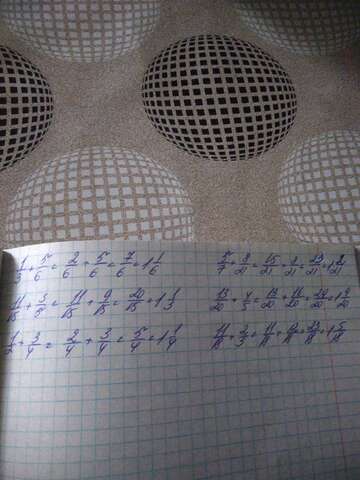 1/3 + 5/6 = 2/6 + 5/6 = 7/6 = 1 1/6 5/7 + 8/21 = 15/21 + 8/21 = 23/21 = 1 2/21
11/15 + 3/5 = 11/15 + 9/15 = 20/15 = 1 1/3 13/20 + 4/5 = 13/20 + 16/20 = 29/20 = 1 9/20
1/2 + 3/4 = 2/4 + 3/4 = 5/4 = 1 1/4 11/18 + 2/3 = 11/18 + 12/18 = 23/18 = 1 5/18